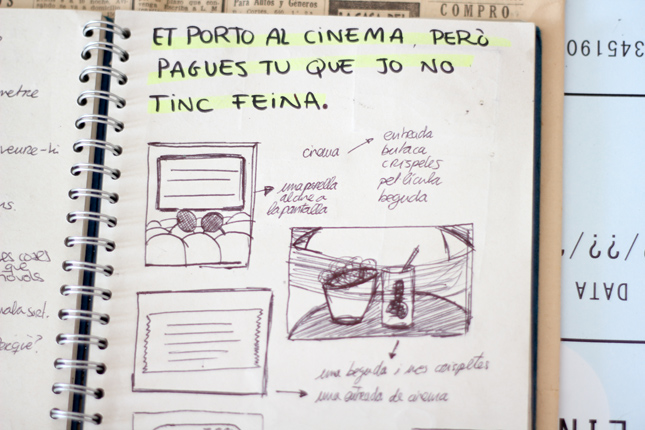 Para Autos y Géneros
COMPRO
ET PORTO AL CINEMA, PERÒ
PAGUES TU QUE JO NO
TINC FEINA.
cinema
entrada
butaca
crispetes
pel·lícula
beguda
una parella
al cine a
la pantalla
una beguda i unes crispetes
una entrada de cinema
metre
veure-hi
ns.
es coses
que
perquè?
345190
/??/
DATA